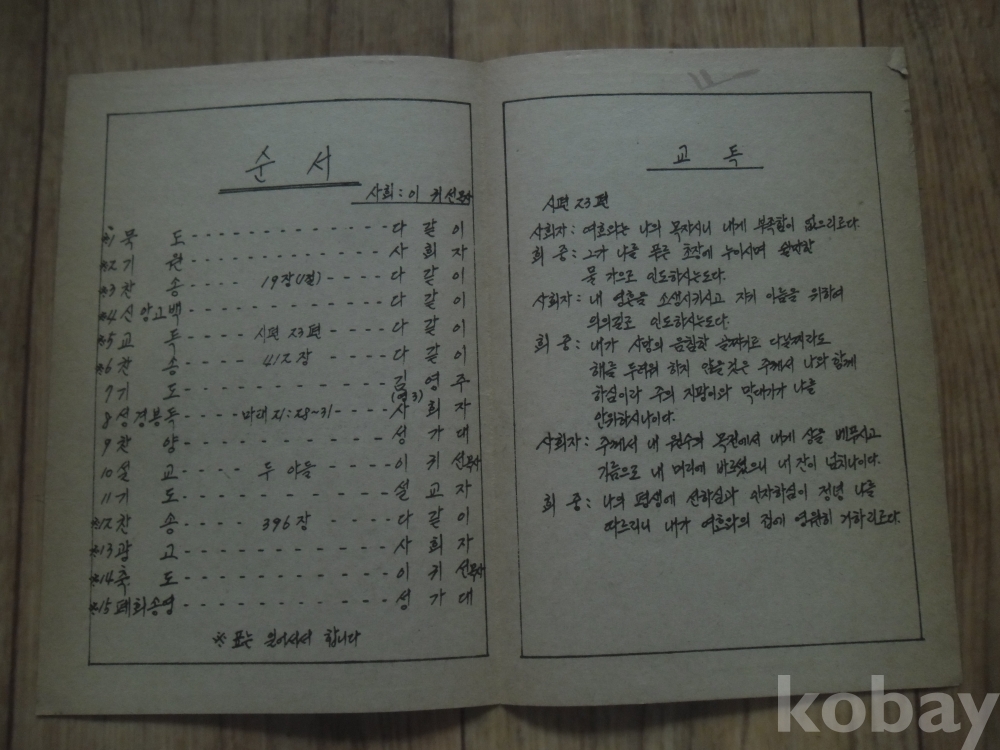 순 서
사회: 이 귀 선목사
※1 묵 도 - - - - - - - - - - - - 다 같 이
※2 기 원 - - - - - - - - - - - - 사 회 자
※3 찬 송 - - - - 19장(1절) - - - - 다 같 이
※4 신앙고백 - - - - - - - - - - - - 다 같 이
※5 교 독 - - - - 시편 23편 - - - - 다 같 이
※6 찬 송 - - - - 412장 - - - - 다 같 이
7 기 도 - - - - - - - - - - - - 김 영 주
(영3)
8 성경봉독 - - - - 마태 21:28~31 - - - - 사 회 자
9 찬 양 - - - - - - - - - - - - 성 가 대
10 설 교 - - - - 두 아들 - - - - 이 귀 선목사
11 기 도 - - - - - - - - - - - - 설 교 자
※12 찬 송 - - - - 396장 - - - - 다 같 이
※13 광 고 - - - - - - - - - - - - 사 회 자
※14 축 도 - - - - - - - - - - - - 이 귀 선목사
※15 폐회송영 - - - - - - - - - - - - 성 가 대
※ 표는 일어서서 합니다
교 독
시편 23편
사회자: 여호와는 나의 목자시니 내게 부족함이 없으리로다.
회 중: 그가 나를 푸른 초장에 누이시며 쉴만한
물 가으로 인도하시는도다.
사회자: 내 영혼을 소생시키시고 자기 이름을 위하여
의의길로 인도하시는도다.
회 중: 내가 사망의 음침한 골짜기로 다닐찌라도
해를 두려워 하지 않을 것은 주께서 나와 함께
하심이라 주의 지팡이와 막대기가 나를
안위하시나이다.
사회자: 주께서 내 원수의 목전에서 내게 상을 베푸시고
기름으로 내 머리에 바르셨으니 내 잔이 넘치나이다.
회 중: 나의 평생에 선하심과 인자하심이 정녕 나를
따르리니 내가 여호와의 집에 영원히 거하리로다.
kobay